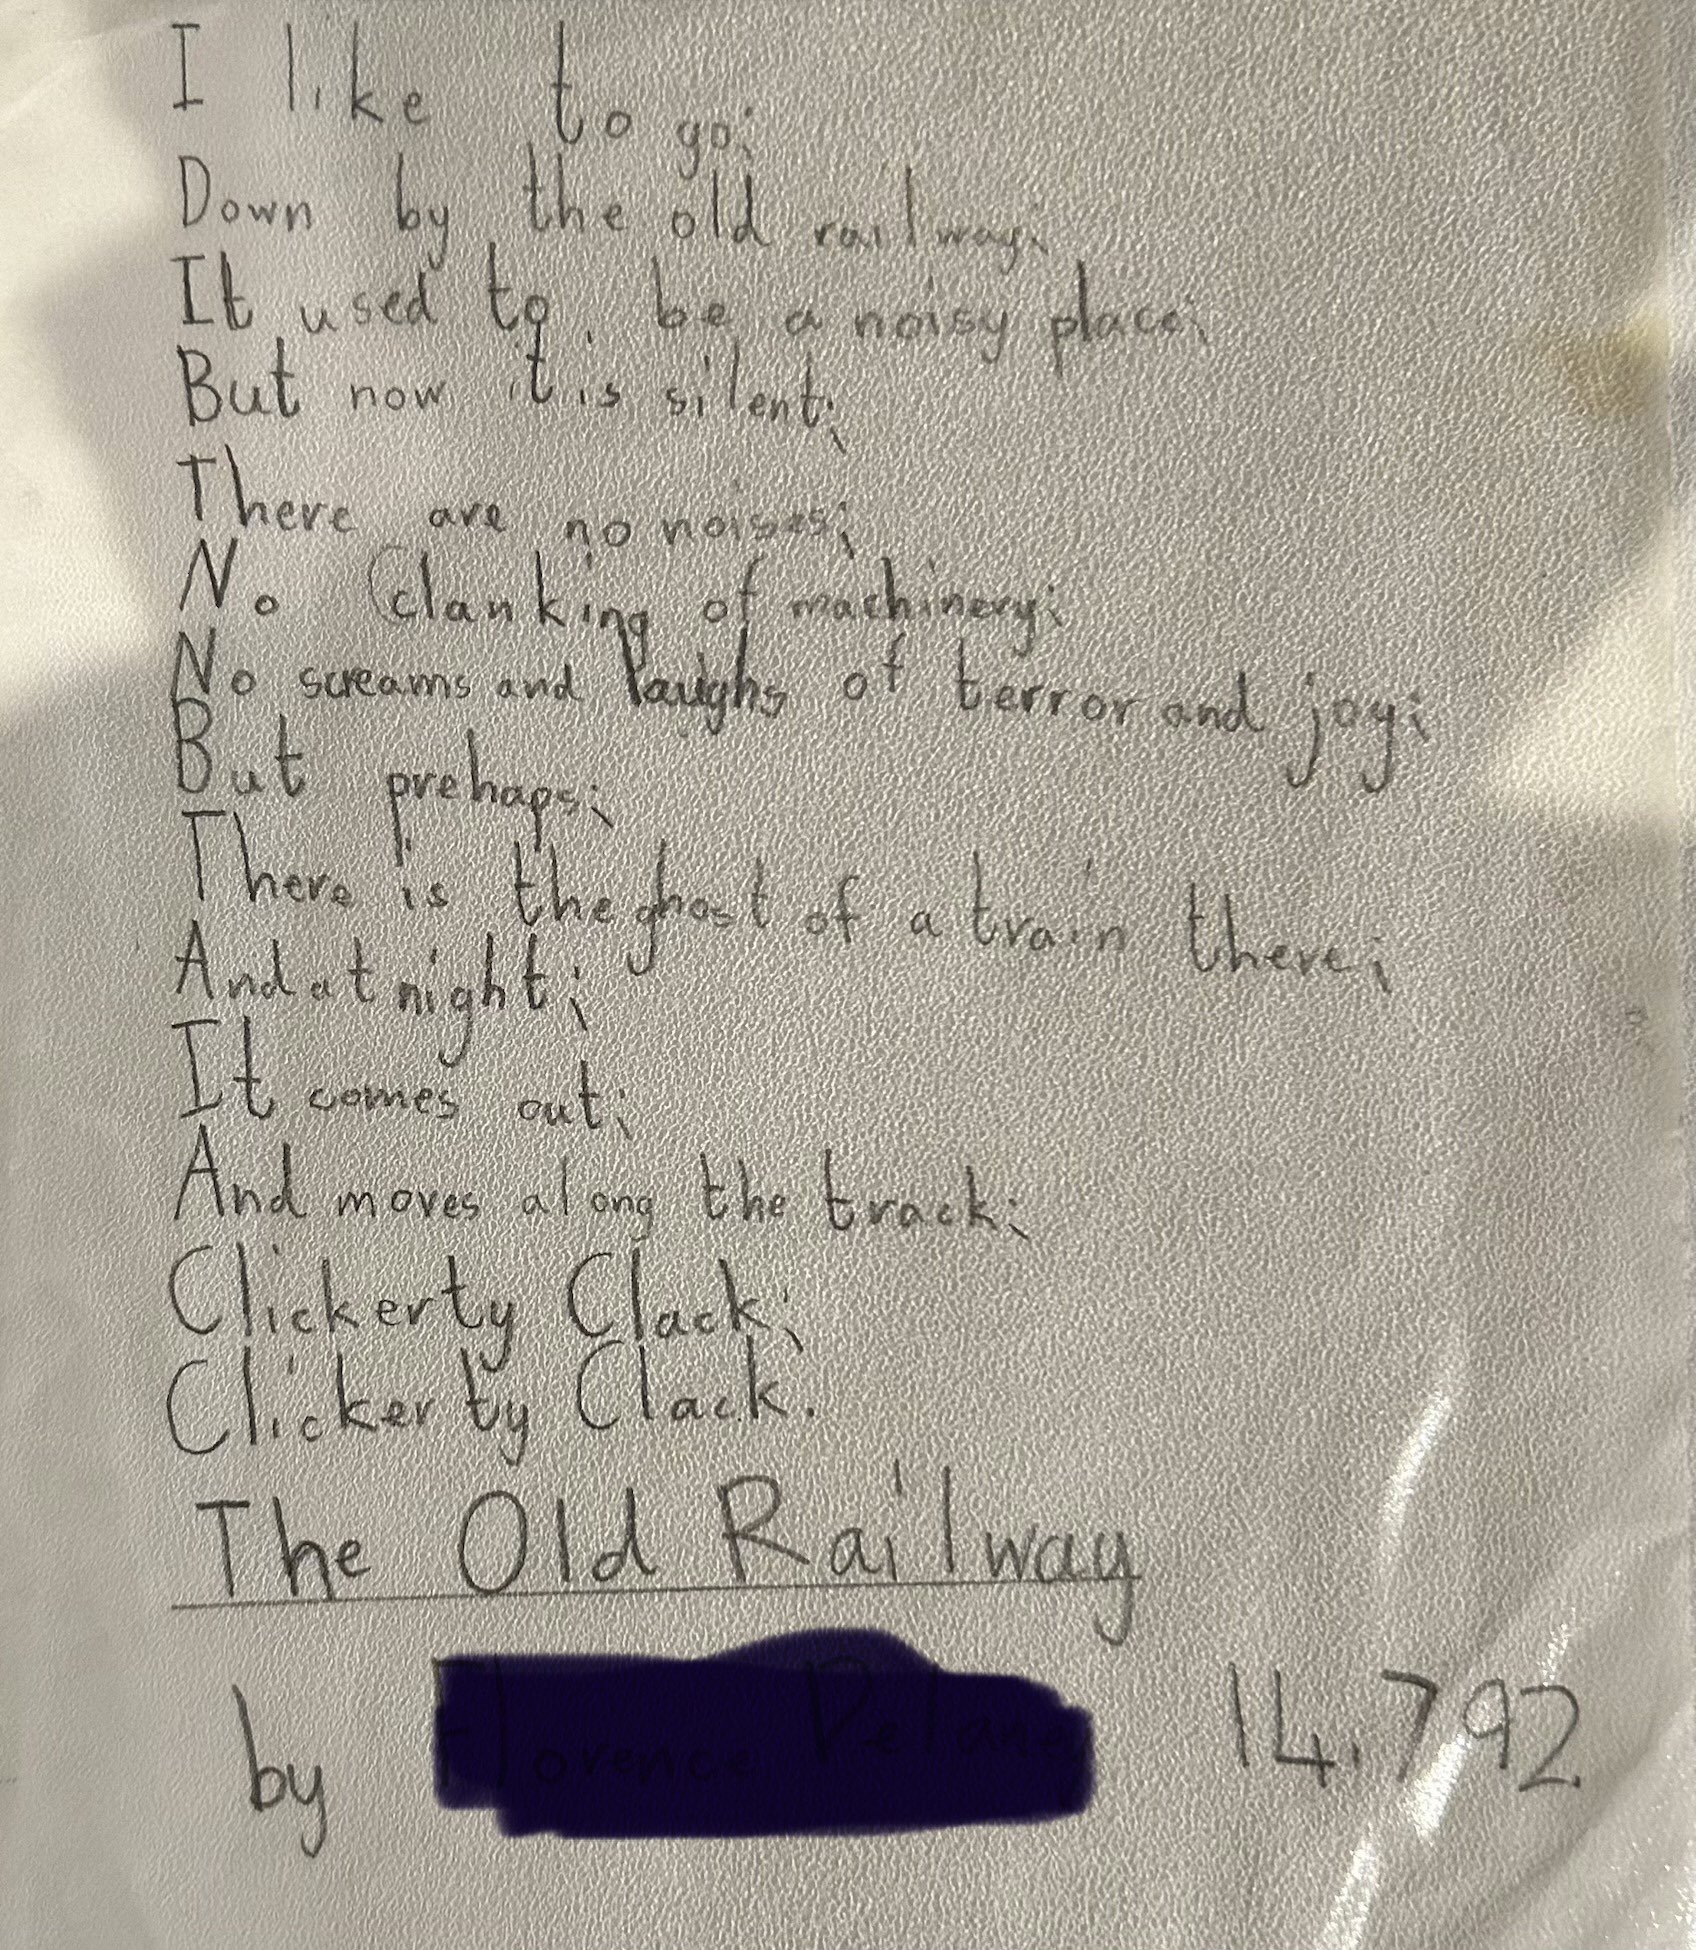 I like to go;
Down by the old railway;
It used to be a noisy place;
But now it is silent;
There are no noises;
No Clanking of machinery;
No screams and laughs of terror and joy;
But prehaps;
There is the ghost of a train there;
And at night;
It comes out;
And moves along the track;
Clickerty Clack;
Clickerty Clack.
The Old Railway
by 14.792